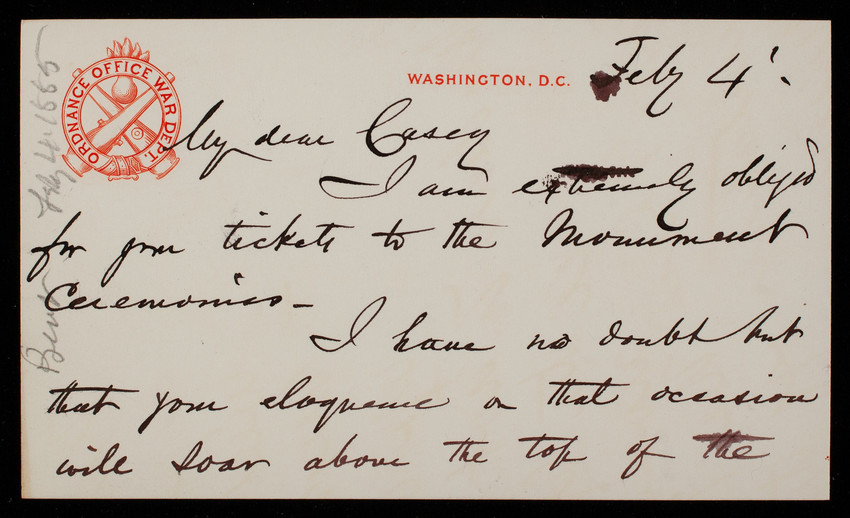 ORDNANCE OFFICE WAR DEPT.
WASHINGTON, D.C.
Feby 4'.
My dear Casey
I am extremely obliged
for your tickets to the Monument
Ceremonies—
I have no doubt but
that your eloquence on that occasion
will soar above the top of the
Benét Feby 4 1885